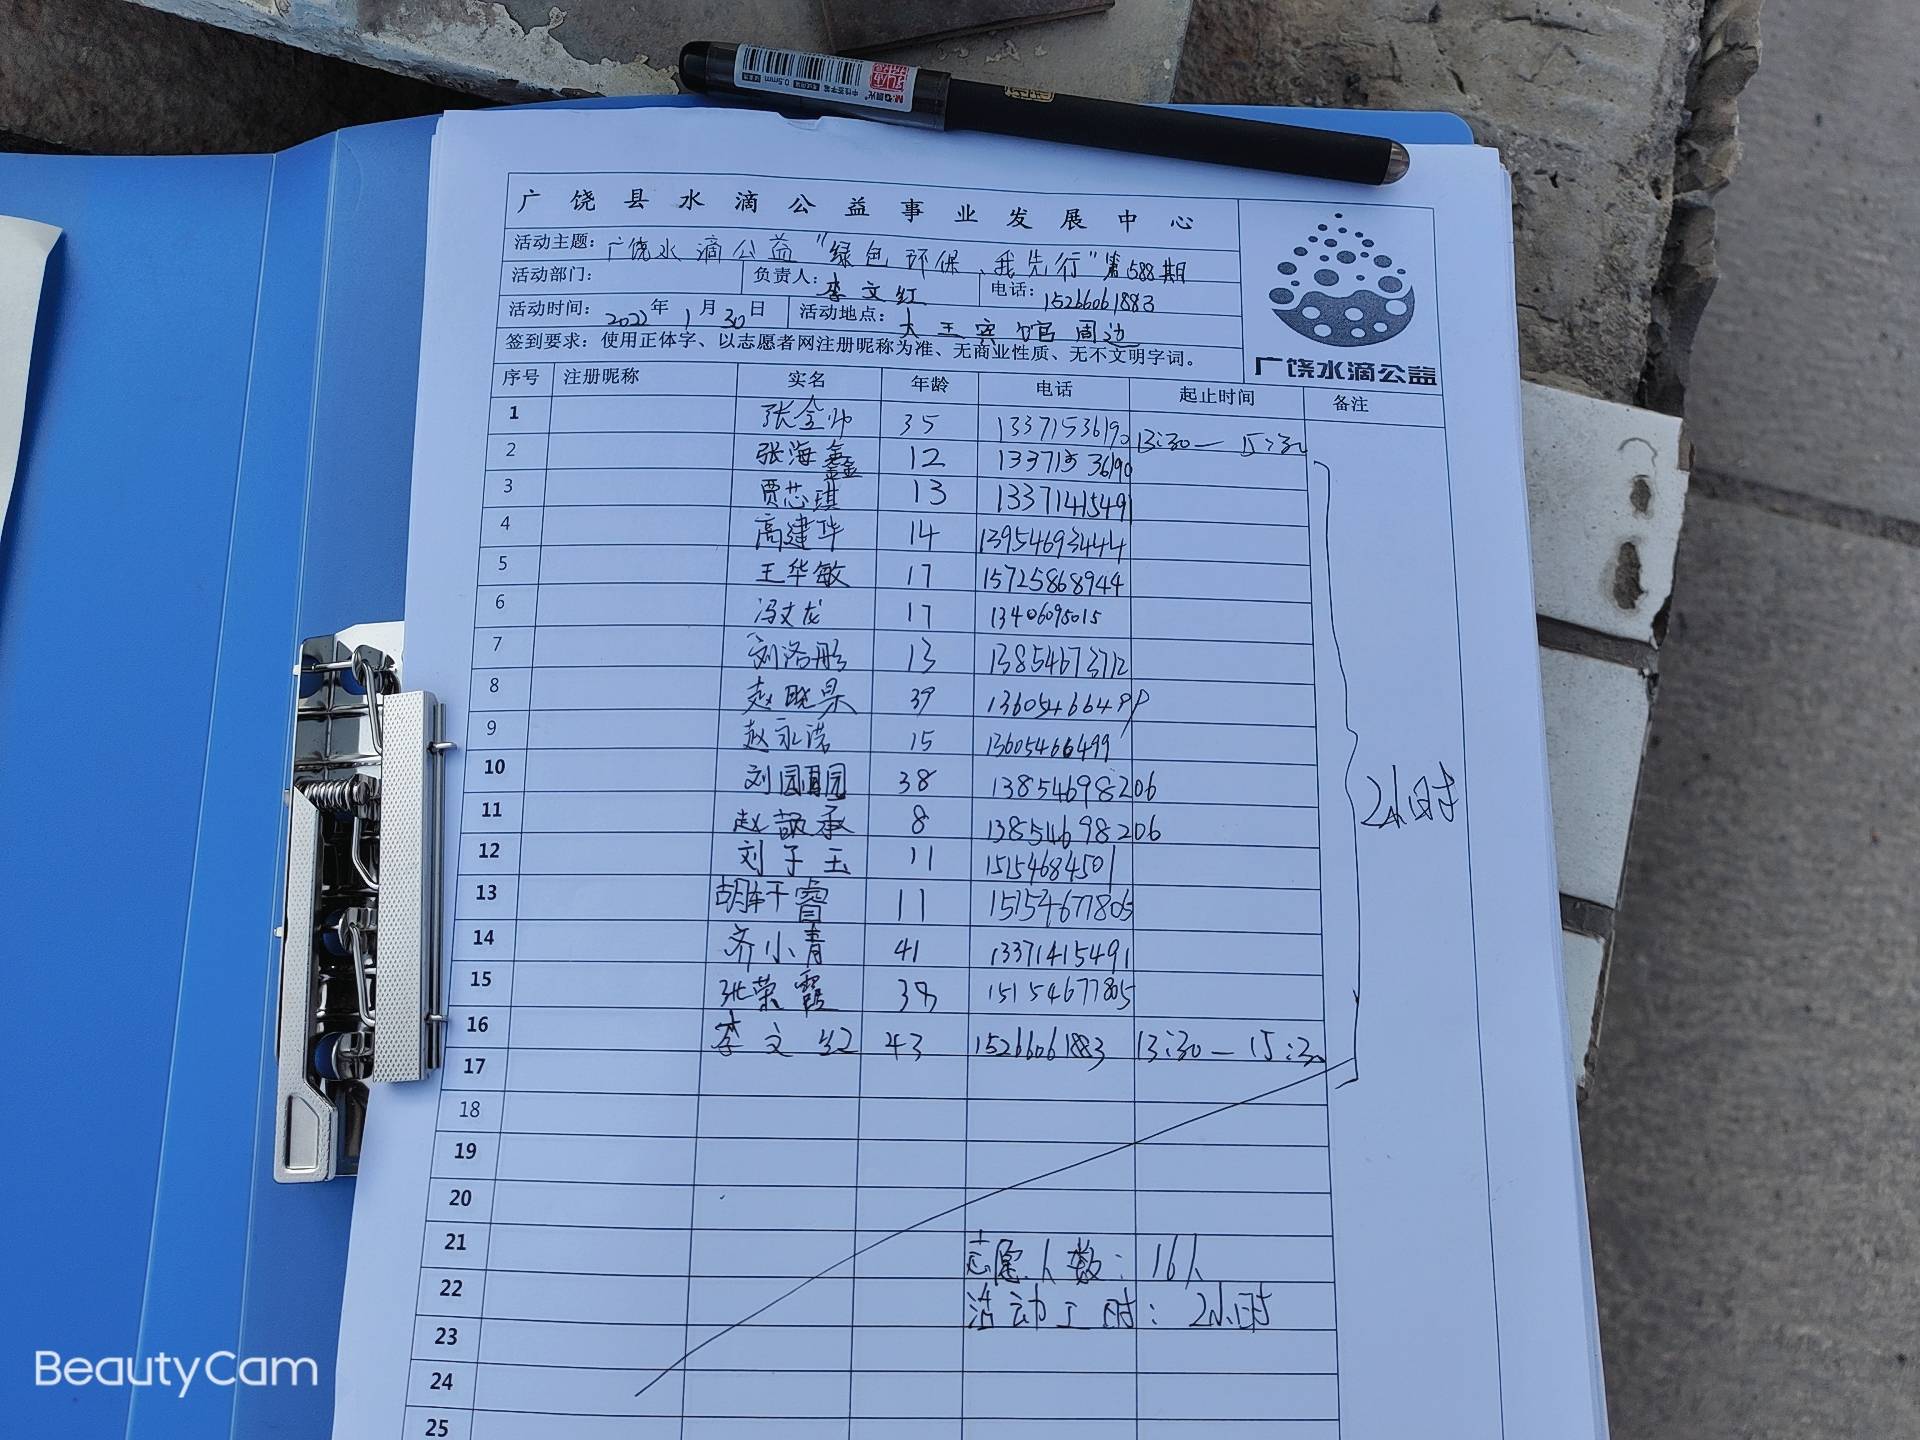 广饶县水滴公益事业发展中心
活动主题：广饶水滴公益“绿色环保、我先行”第588期
活动部门： 负责人：李文红 电话：15266061883
活动时间：2022年1月30日 活动地点：大王宾馆周边
签到要求：使用正体字、以志愿者网注册昵称为准、无商业性质、无不文明字词。
广饶水滴公益
序号 注册昵称 实名 年龄 电话 起止时间 备注
1 张金帅 35 13371536190 13:30—15:30
2 张海鑫 12 13371536190
3 贾芯琪 13 13371415491
4 高建华 14 13954693444
5 王华敏 17 15725868944
6 冯文龙 17 13406095015
7 刘洛彤 13 13854673712
8 赵晓昊 39 13605466499
9 赵永诺 15 13605466499
10 刘园园 38 13854698206
11 赵 承 8 13854698206
12 刘子玉 11 15154684501
13 胡轩睿 11 15154677805
14 齐小青 41 13371415491
15 张荣霞 38 15154677805
16 李文红 43 15266061883 13:30—15:30
2小时
17
18
19
20
21 志愿人数：16人
22 活动工时：2小时
23
24
25
BeautyCam